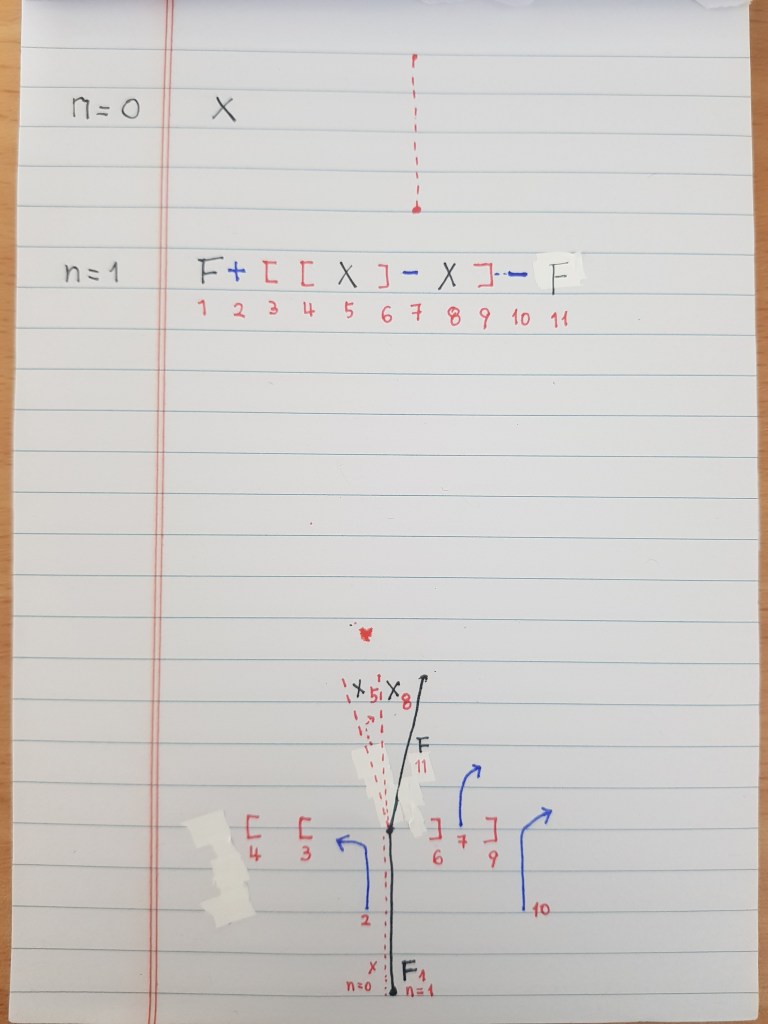 n=0 X
n=1 F+[[X]-X]--F
1 2 3 4 5 6 7 8 9 10 11
X 5 X 8
F
11
[ [ ] 7 ]
4 3 6 9
2 10
X F1
n=0 n=1